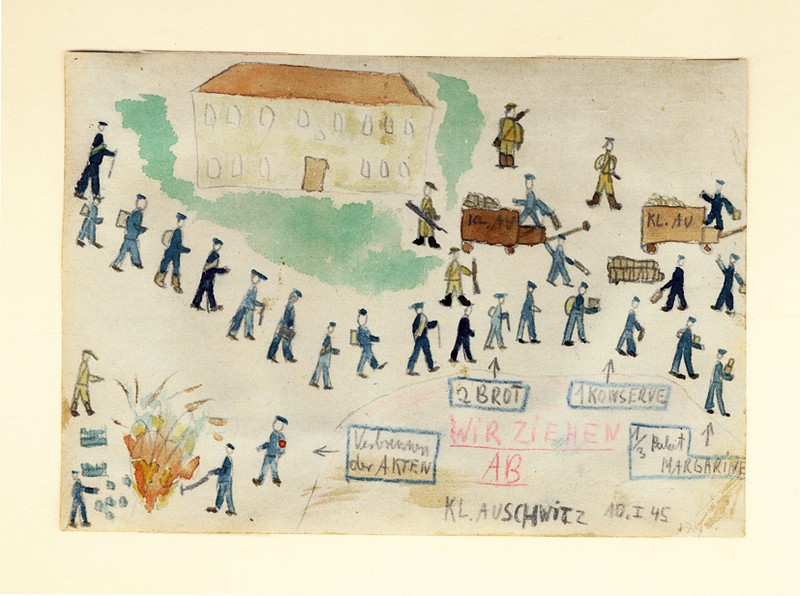 KL. AU
KL. AU
2 BROT
1 KONSERVE
WIR ZIEHEN
AB
1/3 Paket
MARGARINE
Verbrennen
der AKTEN
KL. AUSCHWITZ 10.I 45